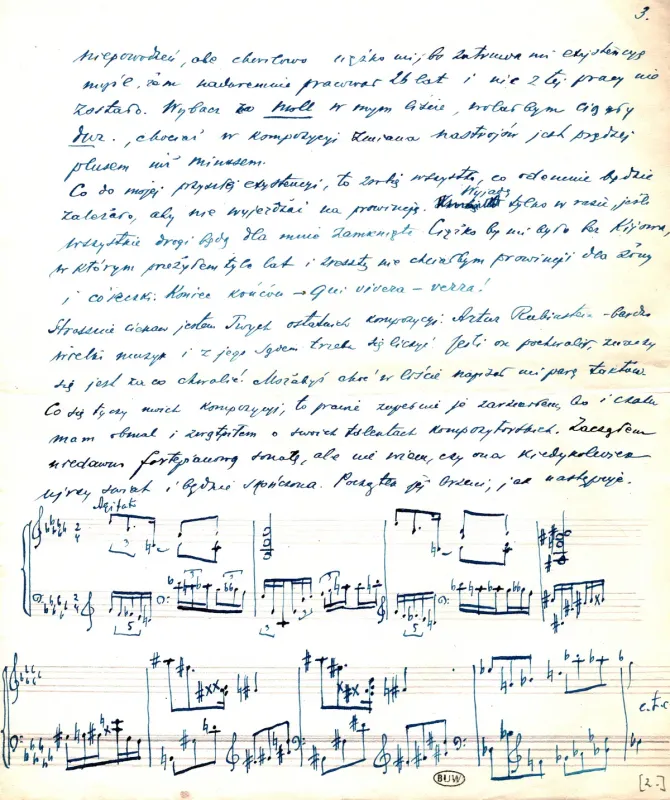 3.
niepowodzeń, ale chwilowo ciężko mi, bo zatruwa mi egzystencyę
myśl, żem nadaremnie pracował 26 lat i nic z tej pracy nie
zostało. Wybacz to moll w mym liście, wolałbym ciągły
dur., chociaż w kompozycyi zmiana nastrojów jest prędzej
plusem niż minusem.
Co do mojej przyszłej egzystencyi, to zrobię wszystko, co odemnie będzie
zależało, aby nie wyjeżdżać na prowincję. Wyjadę tylko w razie, jeśli
wszystkie drogi będą dla mnie zamknięte. Ciężko by mi było bez Kijowa,
w którym przeżyłem tyle lat i zresztą nie chciałbym prowincji dla żony
i córeczki. Koniec końców – Qui vivera – verra!
Strasznie ciekaw jestem Twych ostatnich kompozycji. Artur Rubinstein – bardzo
wielki muzyk i z jego sądem trzeba się liczyć. Jeśli on pochwalił, znaczy
się jest za co chwalić. Możebyś choć w liście napisał mi parę taktów
Co się tyczy moich kompozycyj, to prawie zupełnie je zarzuciłem, bo i czasu
mam obmal i zwątpiłem o swoich talentach kompozytorskich. Zacząłem
niedawno fortepianową sonatę, ale nie wiem, czy ona kiedykolwiek
ujrzy świat i będzie skończona. Początek jej brzmi, jak następuje.
Agitato
e.t.c
BUW
[2.]